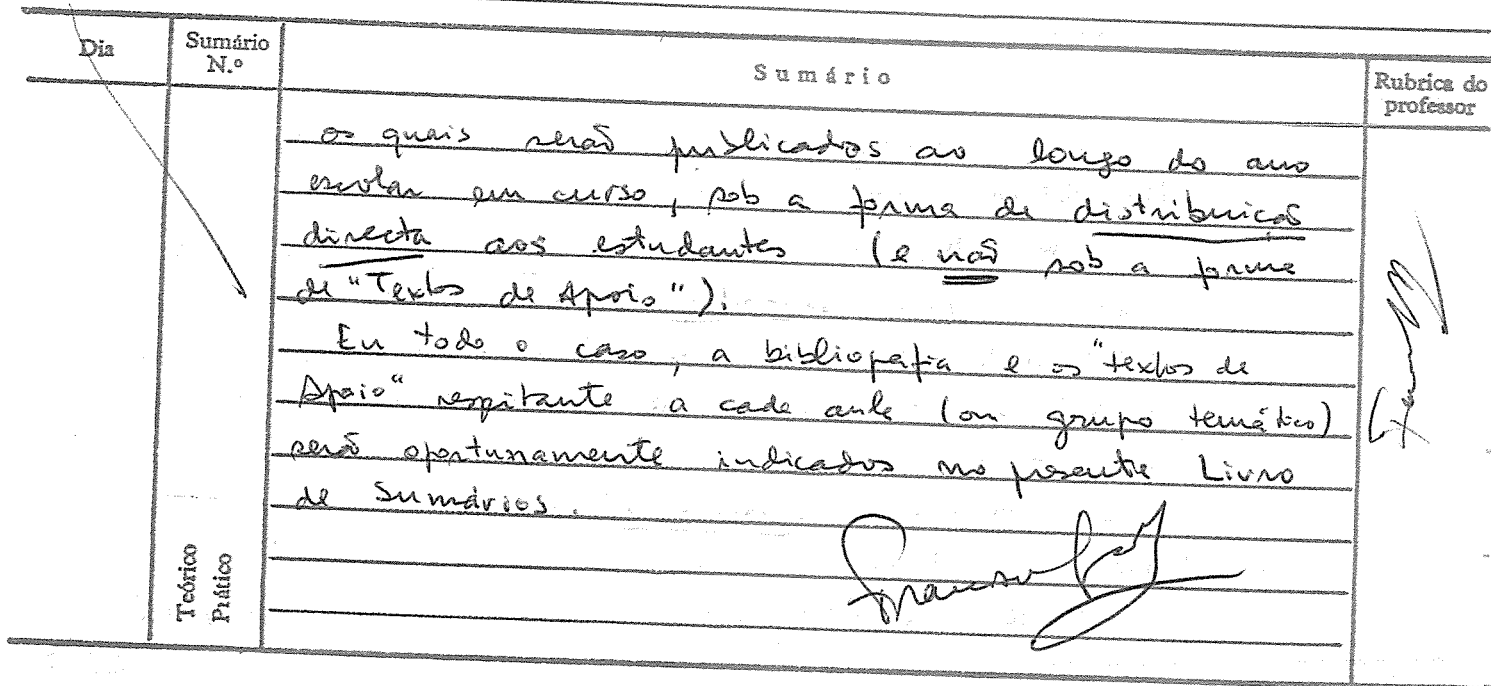 Dia
Sumário
N.º
Sumário
Rubrica do
professor
os quais serão publicados ao longo do ano
escolar em curso, sob a forma de distribuição
directa aos estudantes (e não sob a forma
de "Textos de Apoio").
Em todo o caso, a bibliografia e os "textos de
Apoio" respitante a cada aula (ou grupo temático)
serão oportunamente indicados no presente Livro
de Sumários.
Teórico
Prático